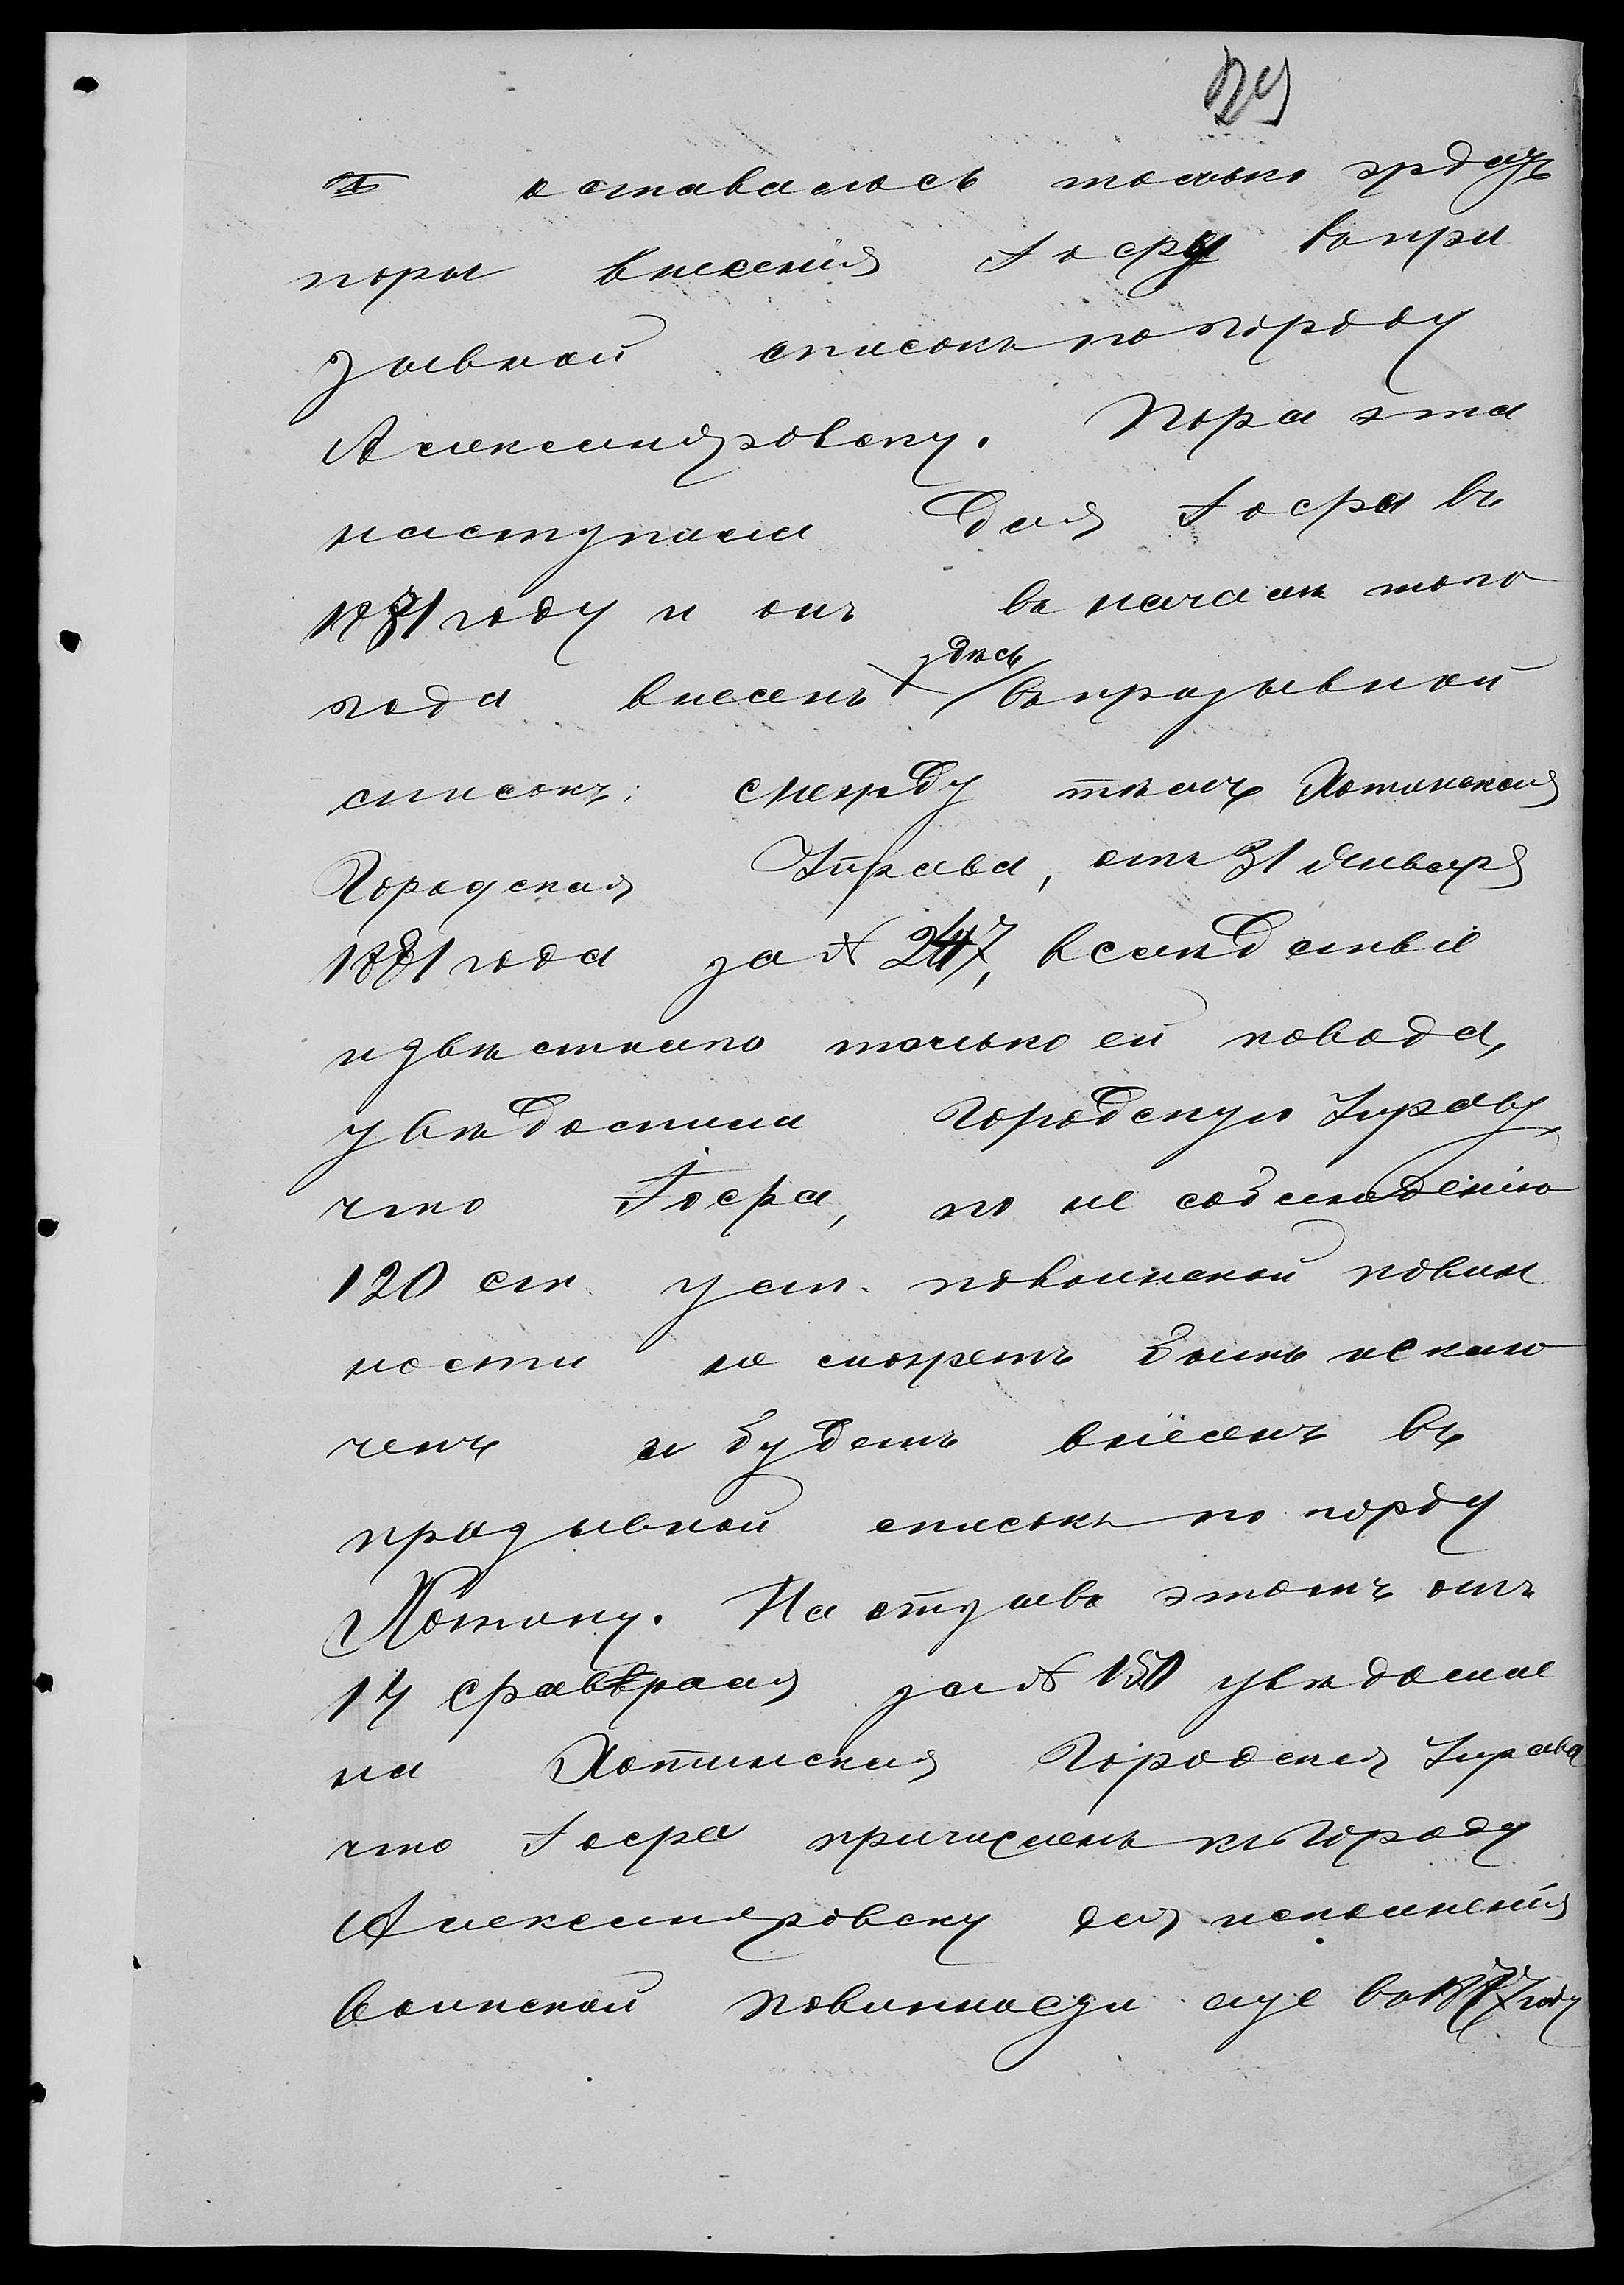 оставалось только ждать
поры внесенія Іосфу въ при
зывной списокъ по городу
Александровску. Пора эта
наступила для Іосфа въ
1881 году и онъ въ началѣ того
года внесенъ здѣсь въ призывной
списокъ; между тѣмъ Хотинская
Городская Управа, отъ 31 Января
1881 года за № 247, вслѣдствіе
извѣстнаго только ей повода,
увѣдомила Городскую Управу,
что Іосфа, по не соблюденію
120 ст. уст. повоинской повин
ности не можетъ быть исклю
ченъ и будетъ внесенъ въ
призывной списокъ по городу
Хотину. На отзывъ этотъ отъ
14 февраля за № 151 увѣдомле
на Хотинская Городская Управа
что Іосфа причисленъ къ городу
Александровску для исполненія
воинской повинности еще въ 1877 году